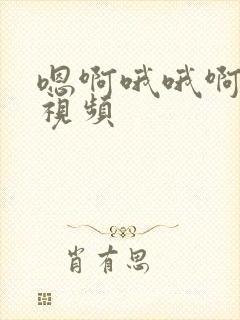 嗯啊哦哦啊
視頻
肖有思